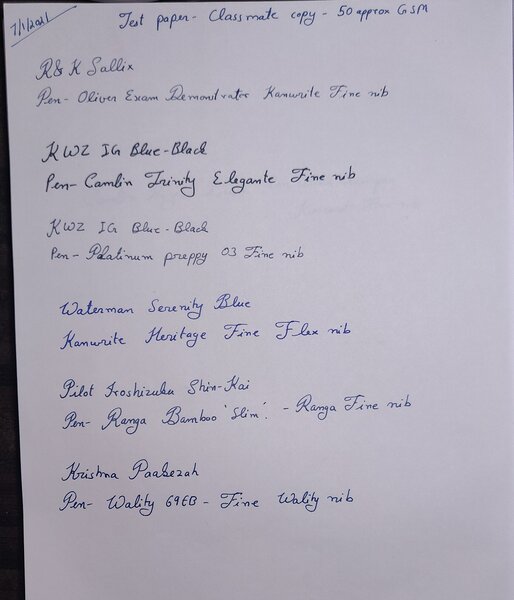 7/1/2021
Test paper - Classmate copy - 50 approx GSM
R & K Sallix
Pen - Oliver Exam Demonstrator Kanwrite Fine nib
KWZ IG Blue-Black
Pen - Camlin Trinity Elegante Fine nib
KWZ IG Blue-Black
Pen - Platinum preppy 03 Fine nib
Waterman Serenity Blue
Kanwrite Heritage Fine Flex nib
Pilot Iroshizuku Shin-Kai
Pen - Ranga Bamboo 'Slim'. - Ranga Fine nib
Krishna Paakezah
Pen - Wality 69EB - Fine Wality nib